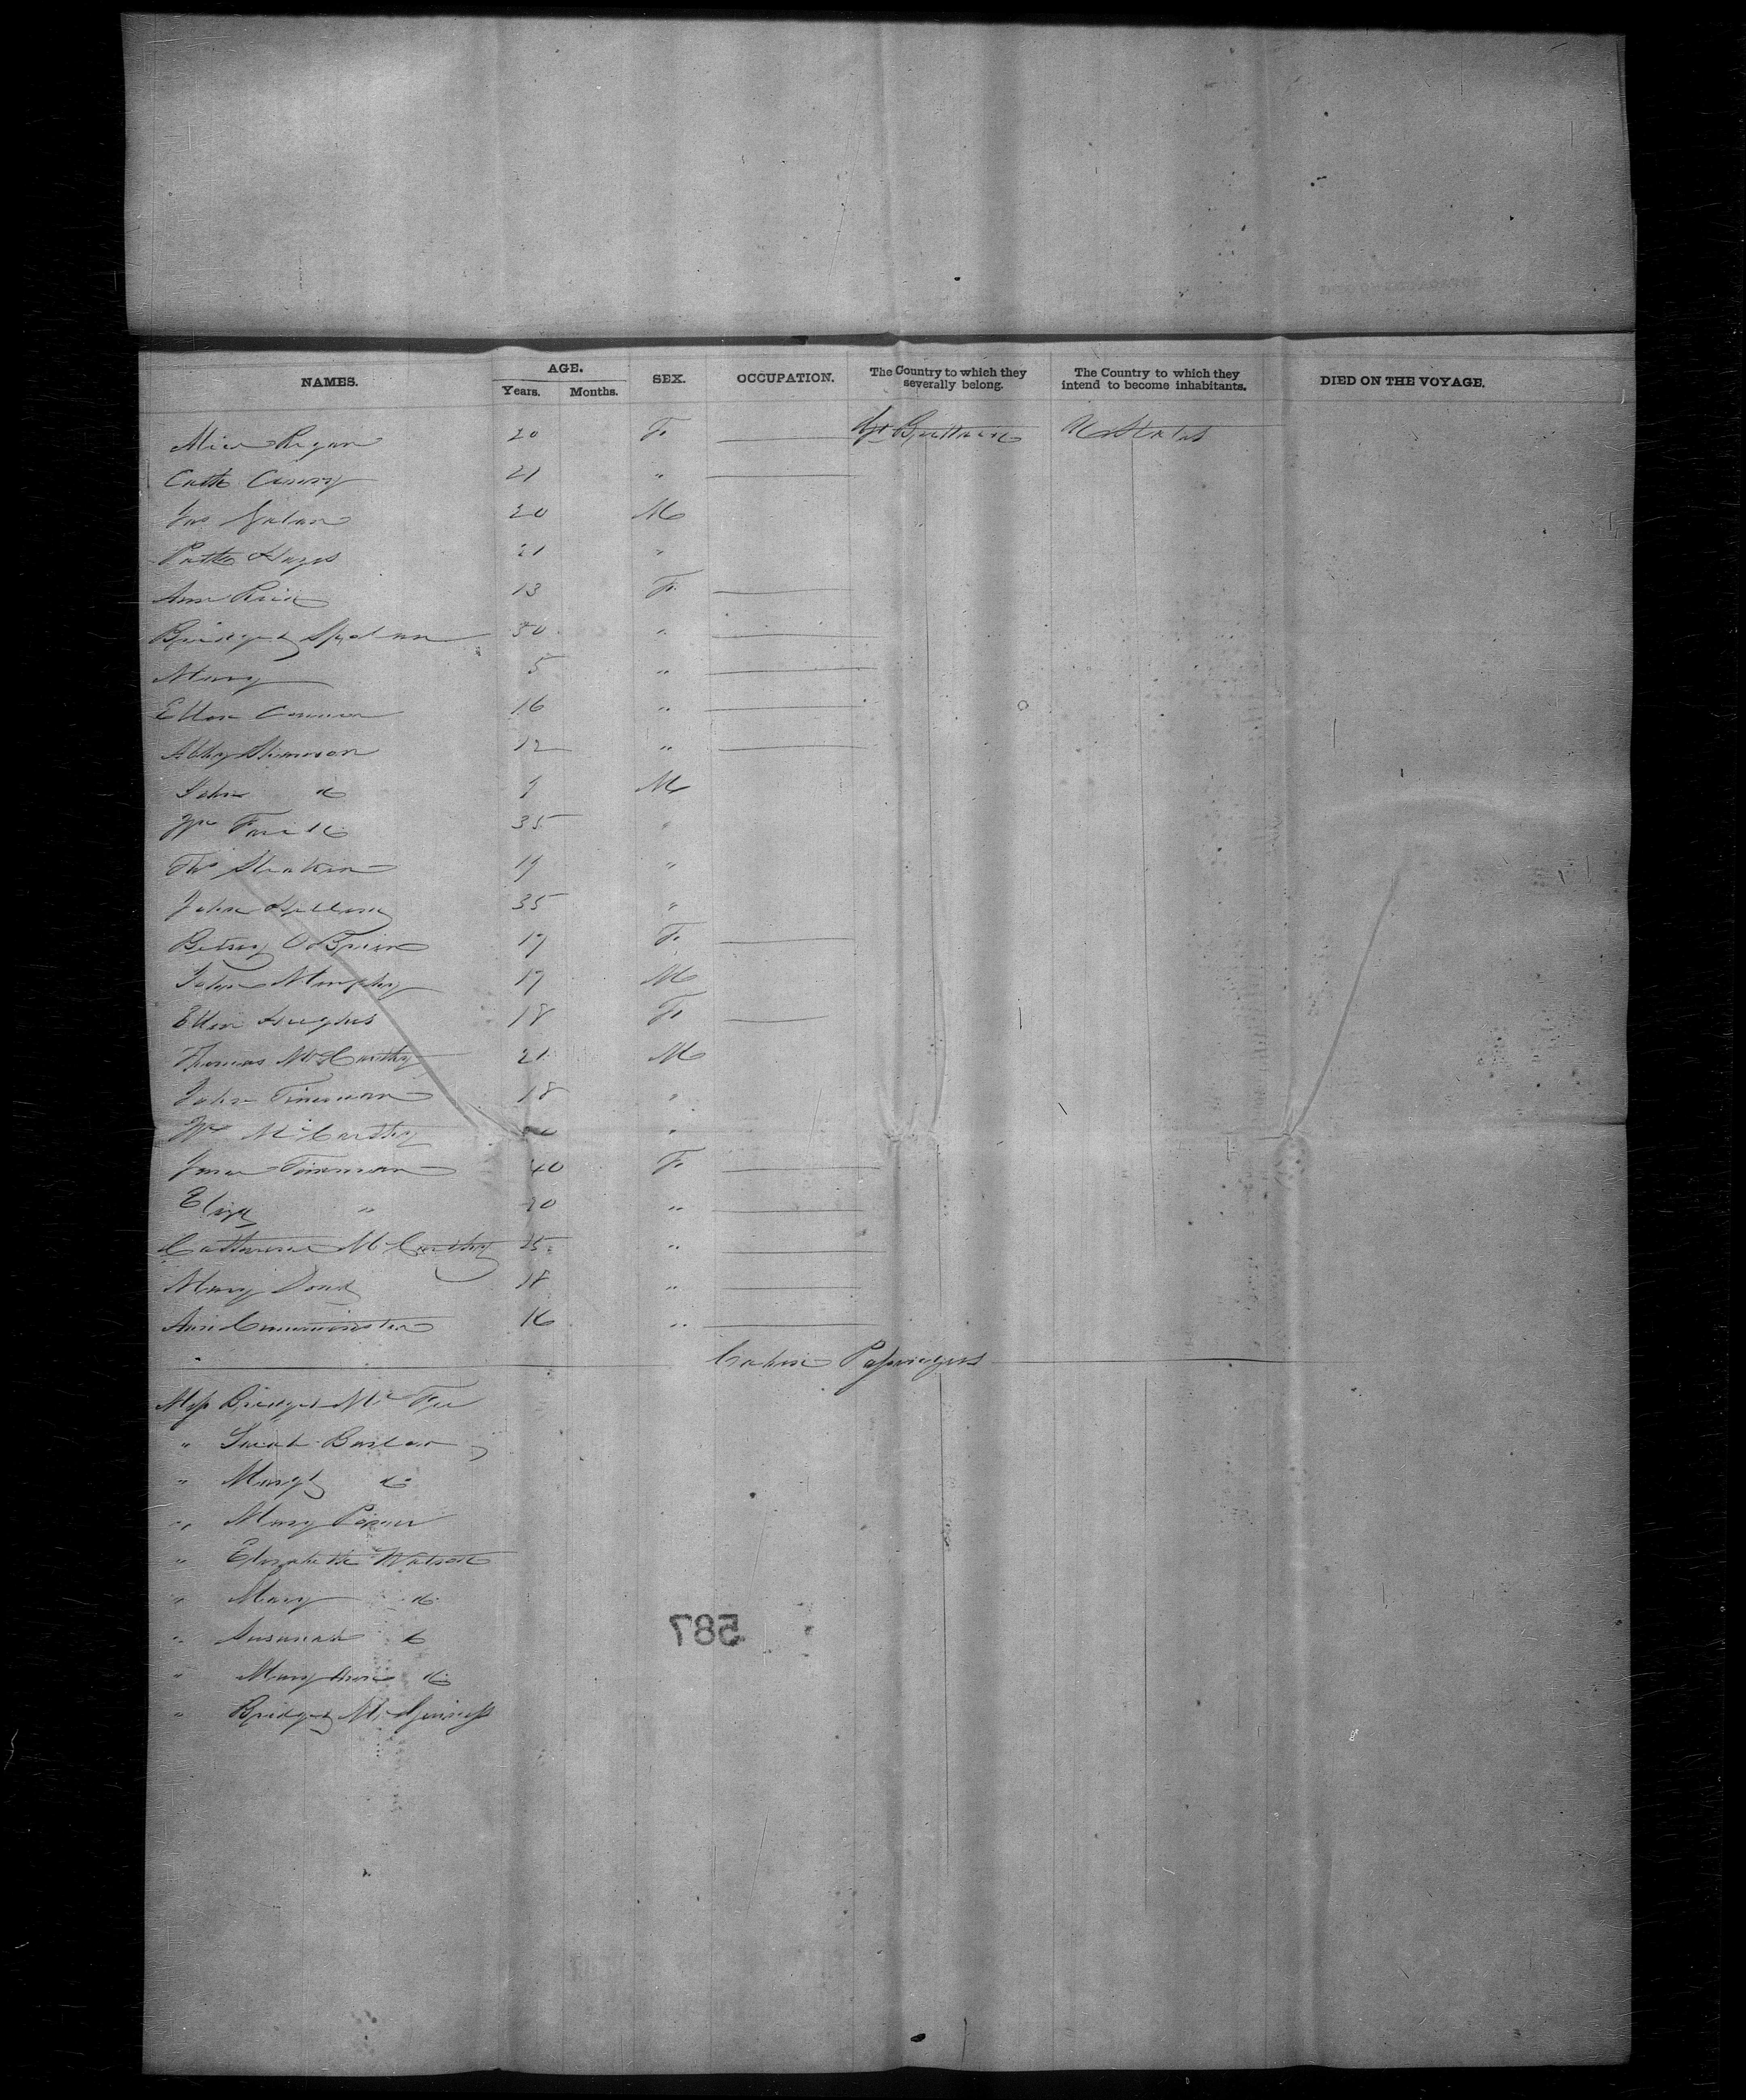 NAMES. AGE. SEX. OCCUPATION. The Country to which they severally belong. The Country to which they intend to become inhabitants. DIED ON THE VOYAGE.
Years. Months.
Alice Regan 20 F. Gt Brittain U States
Cath 21 "
Jas 20 M
Patk Hayes 21 "
Ann 13 F.
Bridget 30 "
Mary 5 "
Ellen Connor 16 "
Abby 12 "
John do 9 M
Wm 35 "
Thos 19 "
John 35 "
Betsey O'Brien 17 F.
John Murphy 17 M
Ellen Hughes 18 F.
Thomas McCarthy 21 M
John Finerman 18 "
Wm McCarthy "
Jane Finerman 40 F.
Eliza " 20 "
Catherine McCarthy 25 "
Mary Doud 18 "
Ann 16 "
Cabin Passengers
Miss Bridget Mc
" Sarah
" Margt do
" Mary
" Elizabeth Watson
" Mary do
" Susanah do
" Mary Ann do
" Bridget McGuiness
587